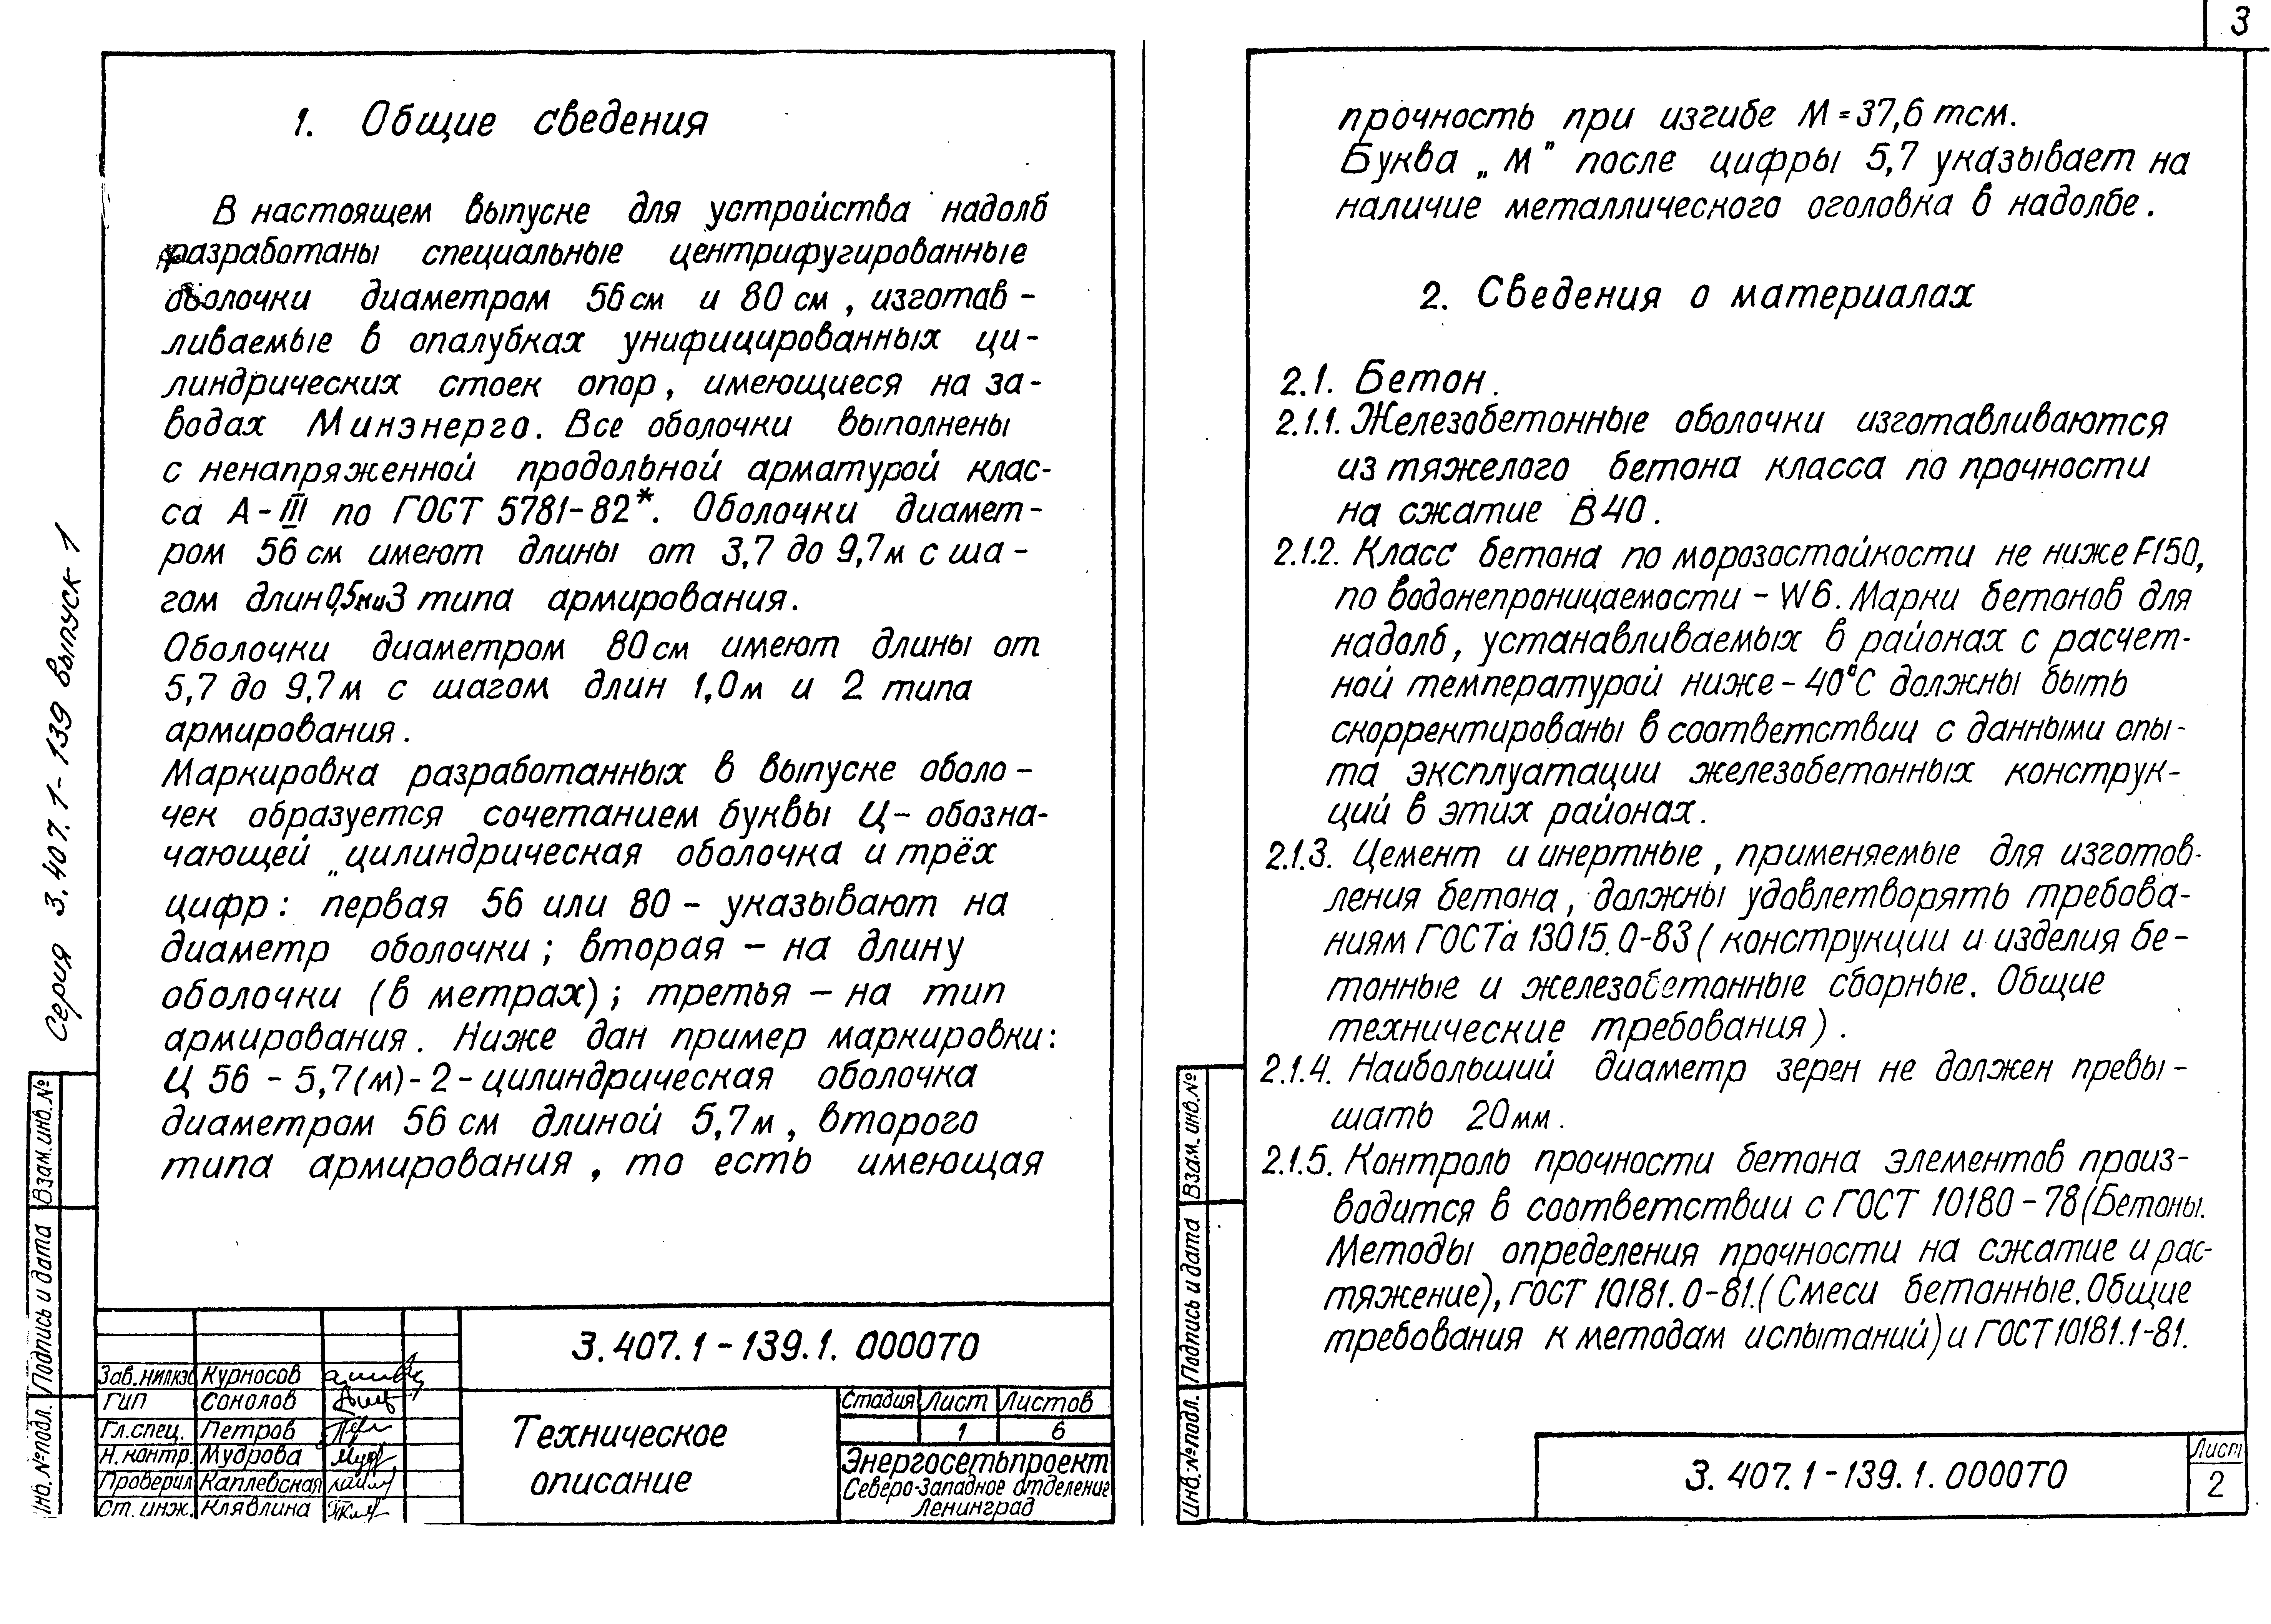 3
1. Общие сведения
В настоящем выпуске для устройства надолб
разработаны специальные центрифугированные
оболочки диаметром 56 см и 80 см, изготав-
ливаемые в опалубках унифицированных ци-
линдрических стоек опор, имеющиеся на за-
водах Минэнерго. Все оболочки выполнены
с ненапряженной продольной арматурой клас-
са А-III по ГОСТ 5781-82*. Оболочки диамет-
ром 56 см имеют длины от 3,7 до 9,7 м с ша-
гом длин 0,5м и 3 типа армирования.
Оболочки диаметром 80 см имеют длины от
5,7 до 9,7 м с шагом длин 1,0 м и 2 типа
армирования.
Маркировка разработанных в выпуске оболо-
чек образуется сочетанием буквы Ц- обозна-
чающей „цилиндрическая оболочка и трёх
цифр: первая 56 или 80 - указывают на
диаметр оболочки; вторая - на длину
оболочки (в метрах); третья - на тип
армирования. Ниже дан пример маркировки:
Ц 56 - 5,7(м)-2-цилиндрическая оболочка
диаметром 56 см длиной 5,7 м, второго
типа армирования, то есть имеющая
Серия 3.407.1-139 выпуск 1
Взам. инв. №
Подпись и дата
Инв. № подл.
Зав.НИЛКЭС Курносов
ГИП Соколов
Гл.спец. Петров
Н.контр. Мудрова
Проверил Каплевская
Ст. инж. Клявлина
3.407.1-139.1.0000ТО
Техническое
описание
Стадия Лист Листов
1 6
Энергосетьпроект
Северо-Западное отделение
Ленинград
прочность при изгибе М=37,6 тсм.
Буква „М" после цифры 5,7 указывает на
наличие металлического оголовка в надолбе.
2. Сведения о материалах
2.1. Бетон.
2.1.1. Железобетонные оболочки изготавливаются
из тяжелого бетона класса по прочности
на сжатие В40.
2.1.2. Класс бетона по морозостойкости не ниже F150,
по водонепроницаемости - W6. Марки бетонов для
надолб, устанавливаемых в районах с расчет-
ной температурой ниже - 40°С должны быть
скорректированы в соответствии с данными опы-
та эксплуатации железобетонных конструк-
ций в этих районах.
2.1.3. Цемент и инертные, применяемые для изготов-
ления бетона, должны удовлетворять требова-
ниям ГОСТа 13015.0-83 (конструкции и изделия бе-
тонные и железобетонные сборные. Общие
технические требования).
2.1.4. Наибольший диаметр зерен не должен превы-
шать 20 мм.
2.1.5. Контроль прочности бетона элементов произ-
водится в соответствии с ГОСТ 10180-78 (Бетоны.
Методы определения прочности на сжатие и рас-
тяжение), ГОСТ 10181.0-81. (Смеси бетонные. Общие
требования к методам испытаний) и ГОСТ 10181.1-81.
Взам. инв. №
Подпись и дата
Инв. № подл.
3.407.1-139.1.0000ТО
Лист
2